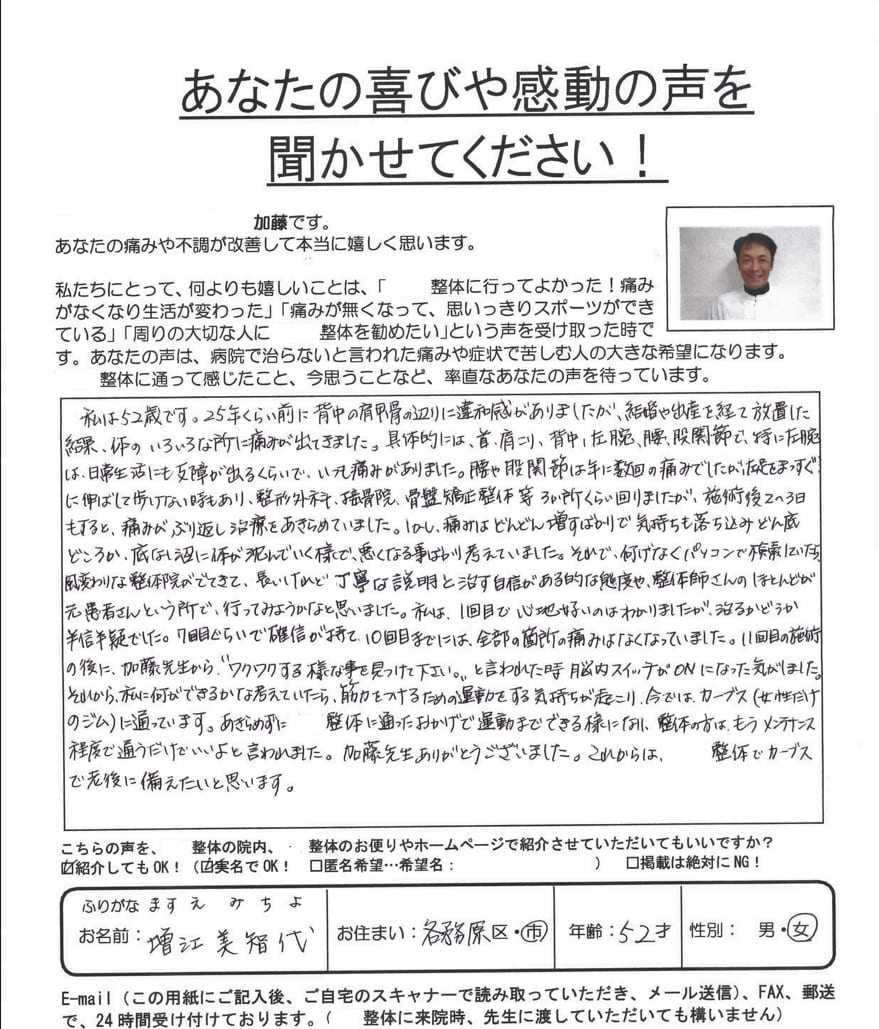 あなたの喜びや感動の声を
聞かせてください！
加藤です。
あなたの痛みや不調が改善して本当に嬉しく思います。
私たちにとって、何よりも嬉しいことは、「　　整体に行ってよかった！痛み
がなくなり生活が変わった」「痛みが無くなって、思いっきりスポーツができ
ている」「周りの大切な人に　　整体を勧めたい」という声を受け取った時で
す。あなたの声は、病院で治らないと言われた痛みや症状で苦しむ人の大きな希望になります。
整体に通って感じたこと、今思うことなど、率直なあなたの声を待っています。
私は52歳です。25年くらい前に背中の肩甲骨の辺りに違和感がありましたが、結婚や出産を経て放置した
結果、体のいろいろな所に痛みが出てきました。具体的には、首、肩こり、背中、左腕、腰、股関節で、特に左腕
は、日常生活にも支障が出るくらいで、いつも痛みがありました。腰や股関節は年に数回の痛みでしたが左足をまっすぐ
に伸ばして歩けない時もあり、整形外科、接骨院、骨盤矯正整体等3か所くらい回りましたが、施術後2〜3日
もすると、痛みがぶり返し治療をあきらめていました。しかし、痛みはどんどん増すばかりで気持ちも落ち込みどん底
どころか、底なし沼に体が沈んでいく様で、悪くなる事ばかり考えていました。それで、何げなくパソコンで検索していたら
風変わりな整体院がでてきて、長いけれど丁寧な説明と治す自信がある的な態度や、整体師さんのほとんどが
元患者さんという所で、行ってみようかなと思いました。私は、1回目で心地好いのはわかりましたが、治るかどうか
半信半疑でした。7回目ぐらいで確信が持て、10回目までには、全部の箇所の痛みはなくなっていました。11回目の施術
の後に、加藤先生から、"ワクワクする様な事を見つけて下さい。"と言われた時脳内スイッチがONになった気がしました。
それから、私に何ができるかな考えていたら、筋力をつけるための運動をする気持ちが起こり、今では、カーブス(女性だけ
のジム)に通っています。あきらめずに　　整体に通ったおかげで運動までできる様になれ、整体の方は、もうメンテナンス
程度で通うだけでいいよと言われました。加藤先生ありがとうございました。これからは、　　整体でカーブス
で老後に備えたいと思います。
こちらの声を、　　整体の院内、　整体のお便りやホームページで紹介させていただいてもいいですか？
☑紹介してもOK！（☑実名でOK！　□匿名希望…希望名：　　　　　　）　□掲載は絶対にNG！
ふりがな ますえ みちよ
お名前：増江美智代　お住まい：各務原区・市　年齢：52才　性別：　男・女
E-mail（この用紙にご記入後、ご自宅のスキャナーで読み取っていただき、メール送信）、FAX、郵送
で、24時間受け付けております。（　　整体に来院時、先生に渡していただいても構いません）